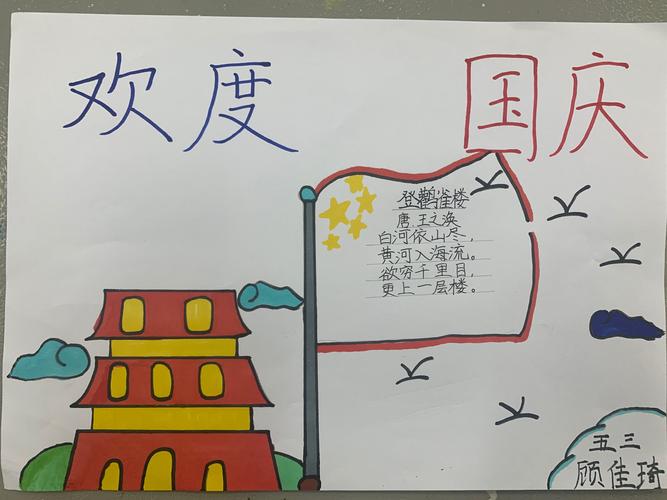 欢度 国庆
登鹳雀楼
唐.王之涣
白河依山尽，
黄河入海流。
欲穷千里目，
更上一层楼。
五三
顾佳琦